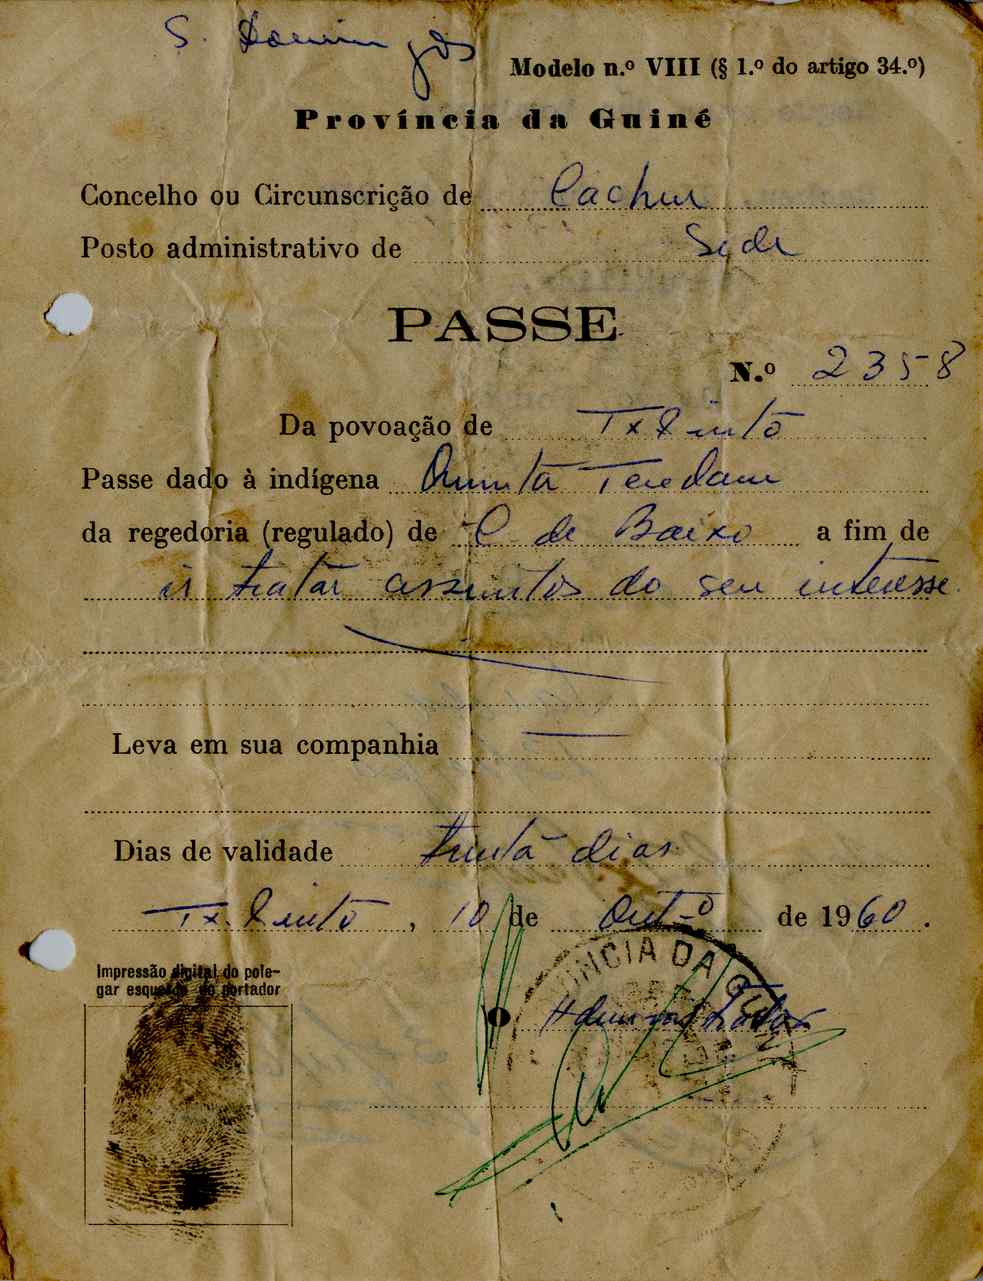 S. Domingos
Modelo n.º VIII (§ 1.º do artigo 34.º)
Província da Guiné
Concelho ou Circunscrição de Cacheu
Posto administrativo de Sede
PASSE
N.º 2358
Da povoação de Tx Pinto
Passe dado à indígena Quinta
da regedoria (regulado) de C de Baixo a fim de
ir tratar assuntos do seu interesse.
Leva em sua companhia
Dias de validade trinta dias
Tx. Pinto, 10 de Out-º de 1960.
Impressão digital do pole-
gar esquerdo do portador
O Administrador
VINCIA DA GUIN